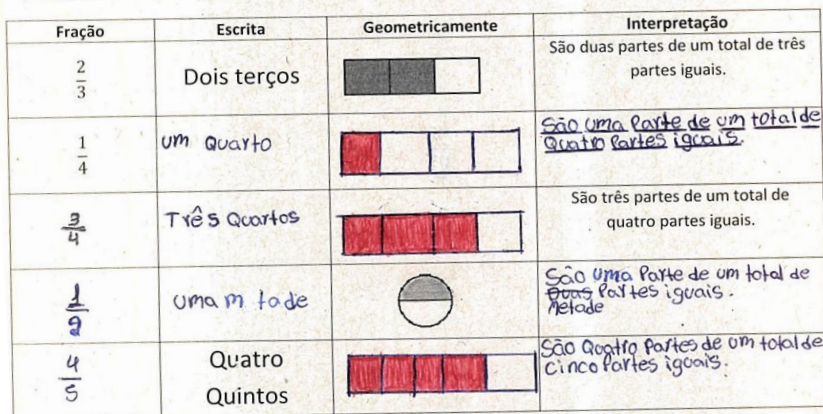 Fração Escrita Geometricamente Interpretação
2/3
Dois terços
São duas partes de um total de três
partes iguais.
1/4
um Quarto
São uma Parte de um total de
Quatro Partes iguais.
3/4
Três Quartos
São três partes de um total de
quatro partes iguais.
1/2
uma m tade
São uma Parte de um total de
Duas Partes iguais.
Metade
4/5
Quatro
Quintos
São Quatro Partes de um total de
Cinco Partes iguais.